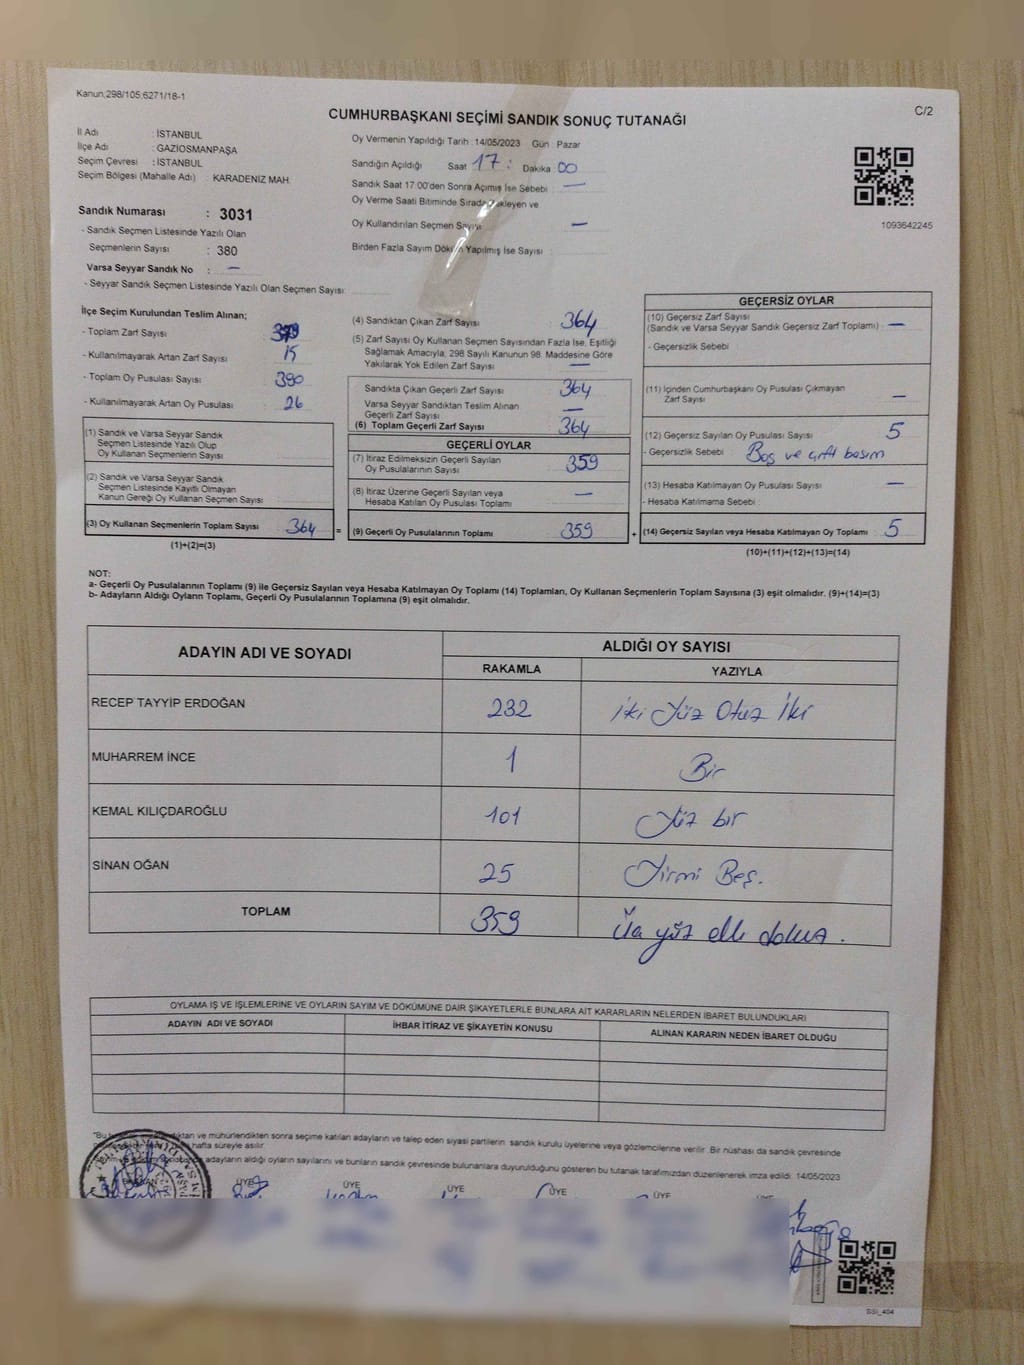 Kanun,298/105,6271/18-1
C/2
CUMHURBAŞKANI SEÇİMİ SANDIK SONUÇ TUTANAĞI
İl Adı : İSTANBUL
İlçe Adı : GAZİOSMANPAŞA
Seçim Çevresi : İSTANBUL
Seçim Bölgesi (Mahalle Adı) : KARADENİZ MAH.
Sandık Numarası : 3031
- Sandık Seçmen Listesinde Yazılı Olan
Seçmenlerin Sayısı : 380
Varsa Seyyar Sandık No : —
- Seyyar Sandık Seçmen Listesinde Yazılı Olan Seçmen Sayısı:
Oy Vermenin Yapıldığı Tarih : 14/05/2023 Gün : Pazar
Sandığın Açıldığı Saat 17 : Dakika : 00
Sandık Saat 17.00'den Sonra Açımış İse Sebebi : —
Oy Verme Saati Bitiminde Sırada Bekleyen ve
Oy Kullandırılan Seçmen Sayısı —
Birden Fazla Sayım Döküm Yapılmış İse Sayısı :
1093642245
İlçe Seçim Kurulundan Teslim Alınan;
- Toplam Zarf Sayısı :
- Kullanılmayarak Artan Zarf Sayısı : 15
- Toplam Oy Pusulası Sayısı : 390
- Kullanılmayarak Artan Oy Pusulası : 26
(1) Sandık ve Varsa Seyyar Sandık
Seçmen Listesinde Yazılı Olup
Oy Kullanan Seçmenlerin Sayısı :
(2) Sandık ve Varsa Seyyar Sandık
Seçmen Listesinde Kayıtlı Olmayan
Kanun Gereği Oy Kullanan Seçmen Sayısı :
(3) Oy Kullanan Seçmenlerin Toplam Sayısı : 364 =
(1)+(2)=(3)
(4) Sandıktan Çıkan Zarf Sayısı : 364
(5) Zarf Sayısı Oy Kullanan Seçmen Sayısından Fazla İse, Eşitliği
Sağlamak Amacıyla; 298 Sayılı Kanunun 98. Maddesine Göre
Yakılarak Yok Edilen Zarf Sayısı : —
Sandıkta Çıkan Geçerli Zarf Sayısı : 364
Varsa Seyyar Sandıktan Teslim Alınan
Geçerli Zarf Sayısı : —
(6) Toplam Geçerli Zarf Sayısı : 364
GEÇERLİ OYLAR
(7) İtiraz Edilmeksizin Geçerli Sayılan
Oy Pusulalarının Sayısı : 359
(8) İtiraz Üzerine Geçerli Sayılan veya
Hesaba Katılan Oy Pusulası Toplamı : —
(9) Geçerli Oy Pusulalarının Toplamı : 359 +
GEÇERSİZ OYLAR
(10) Geçersiz Zarf Sayısı
(Sandık ve Varsa Seyyar Sandık Geçersiz Zarf Toplamı) : —
- Geçersizlik Sebebi :
(11) İçinden Cumhurbaşkanı Oy Pusulası Çıkmayan
Zarf Sayısı : —
(12) Geçersiz Sayılan Oy Pusulası Sayısı : 5
- Geçersizlik Sebebi : Boş ve çift basım
(13) Hesaba Katılmayan Oy Pusulası Sayısı : —
- Hesaba Katılmama Sebebi :
(14) Geçersiz Sayılan veya Hesaba Katılmayan Oy Toplamı : 5
(10)+(11)+(12)+(13)=(14)
NOT:
a- Geçerli Oy Pusulalarının Toplamı (9) ile Geçersiz Sayılan veya Hesaba Katılmayan Oy Toplamı (14) Toplamları, Oy Kullanan Seçmenlerin Toplam Sayısına (3) eşit olmalıdır. (9)+(14)=(3)
b- Adayların Aldığı Oyların Toplamı, Geçerli Oy Pusulalarının Toplamına (9) eşit olmalıdır.
ADAYIN ADI VE SOYADI
ALDIĞI OY SAYISI
RAKAMLA YAZIYLA
RECEP TAYYİP ERDOĞAN 232 İki Yüz Otuz İki
MUHARREM İNCE 1 Bir
KEMAL KILIÇDAROĞLU 101 Yüz bir
SİNAN OĞAN 25 Yirmi Beş.
TOPLAM 359 Üç yüz elli dokuz.
OYLAMA İŞ VE İŞLEMLERİNE VE OYLARIN SAYIM VE DÖKÜMÜNE DAİR ŞİKAYETLERLE BUNLARA AİT KARARLARIN NELERDEN İBARET BULUNDUKLARI
ADAYIN ADI VE SOYADI İHBAR İTİRAZ VE ŞİKAYETİN KONUSU ALINAN KARARIN NEDEN İBARET OLDUĞU
"Bu ve mühürlendikten sonra seçime katılan adayların ve talep eden siyasi partilerin sandık kurulu üyelerine veya gözlemcilerine verilir. Bir nüshası da sandık çevresinde
hafta süreyle asılır.
adayların aldığı oyların sayılarını ve bunların sandık çevresinde bulunanlara duyurulduğunu gösteren bu tutanak tarafımızdan düzenlenerek imza edildi. 14/05/2023
ÜYE ÜYE ÜYE ÜYE ÜYE ÜYE
SSİ_404